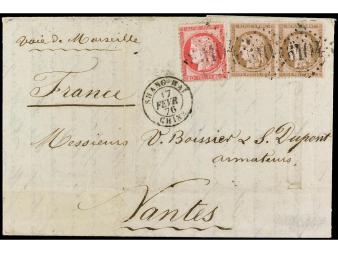 voie de Marseille
France
SHANG-HAI
17
FEVR
76
CHINE
Messieurs V. Boissier & S. Dupont
armateurs
Nantes